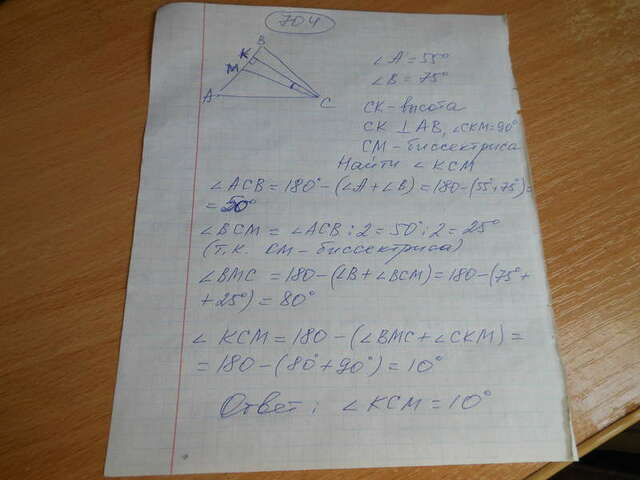 704
B
K
M
A
C
∠A = 55°
∠B = 75°
CK - высота
CK ⊥ AB, ∠CKM = 90°
CM - биссектриса
Найти ∠KCM
∠ACB = 180° - (∠A + ∠B) = 180 - (55° + 75°) =
= 50°
∠BCM = ∠ACB : 2 = 50° : 2 = 25°
(т.к. CM - биссектриса)
∠BMC = 180 - (∠B + ∠BCM) = 180 - (75° +
+ 25°) = 80°
∠KCM = 180 - (∠BMC + ∠CKM) =
= 180 - (80° + 90°) = 10°
Ответ: ∠KCM = 10°